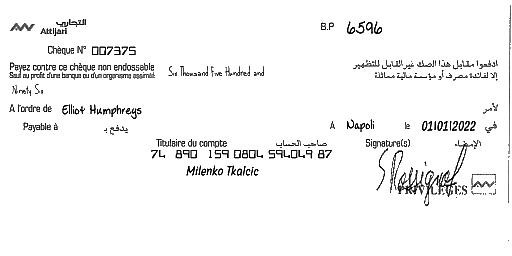 التجاري
Attijari
B.P 6596
Chèque N° 007375
Payez contre ce chèque non endossable
Sauf au profit d'une banque ou d'un organisme assimilé
Six Thousand Five Hundred and
Ninety Six
ادفعوا مقابل هذا الصك غير القابل للتظهير
إلا لفائدة مصرف أو مؤسسة مالية مماثلة
A l'ordre de Elliot Humphreys
لأمر
Payable à يدفع بـ
A Napoli le 01/01/2022 في
Titulaire du compte صاحب الحساب
Signature(s) الإمضاء
74 890 159 0804 594049 87
Milenko Tkalcic
S Rossignol
PRIVILEGES